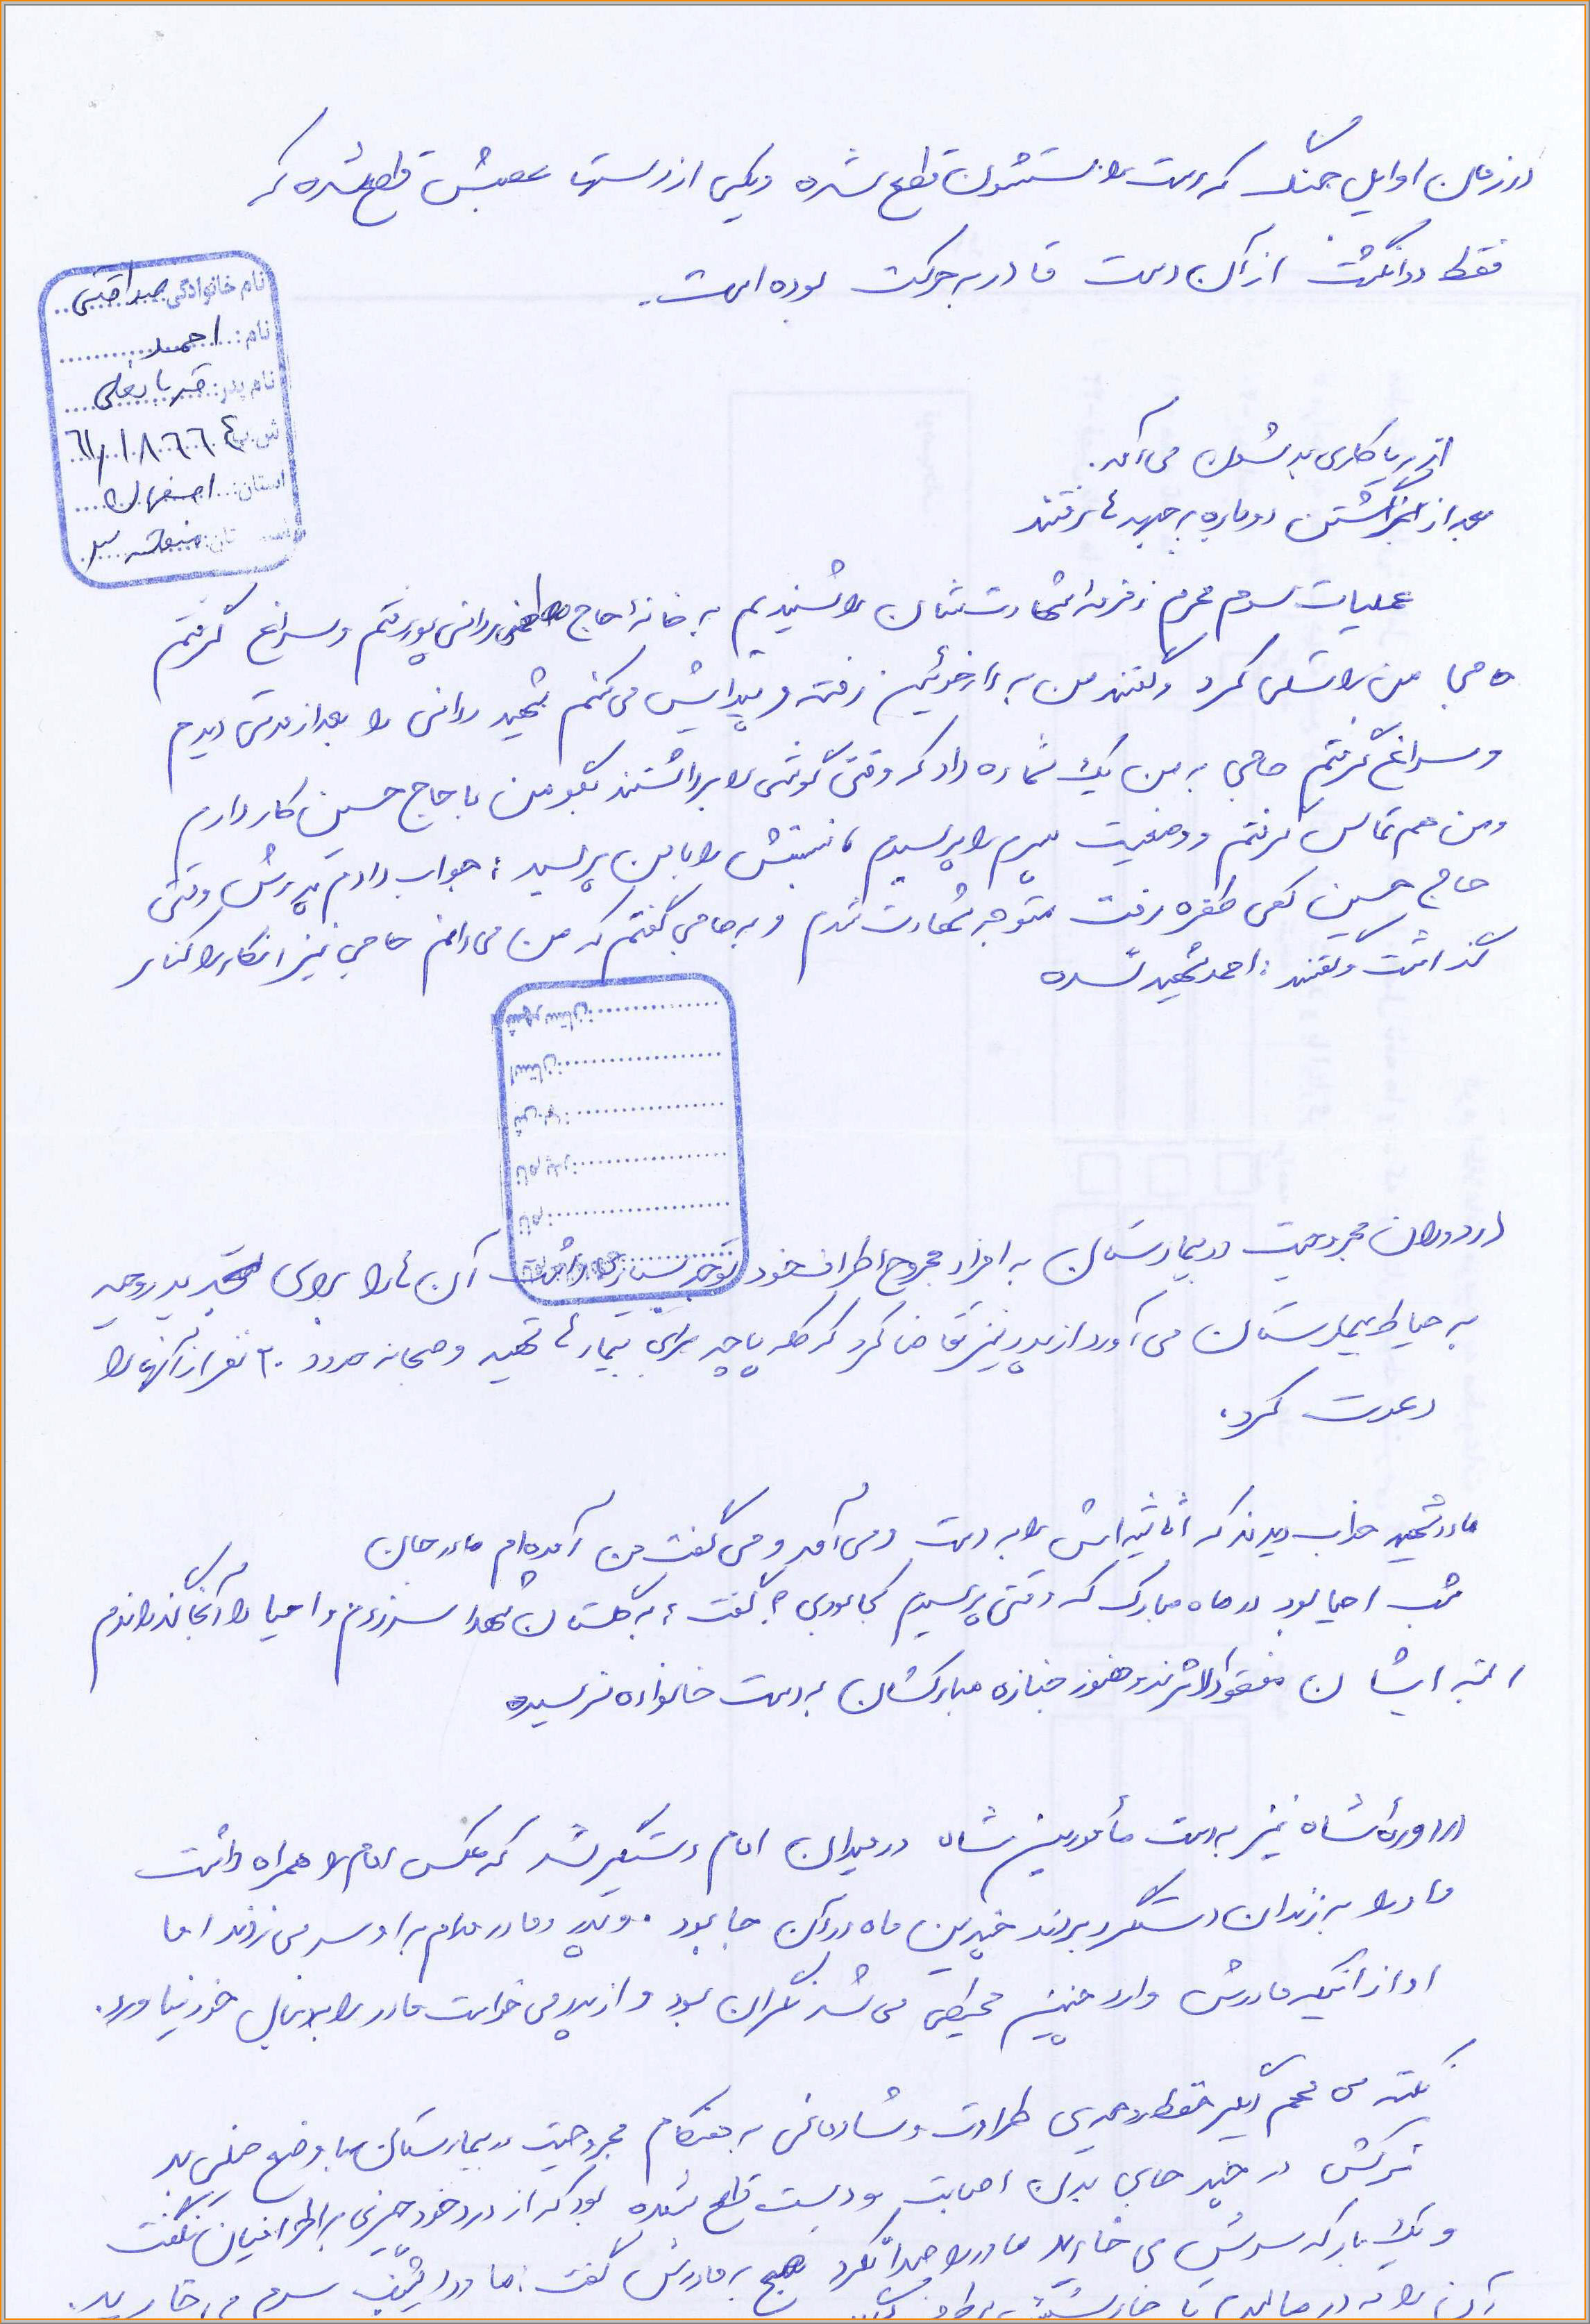 در زمان اوایل جنگ که دست راستشون قطع شده و یکی از دستها عصبش قطع شده که
فقط دو انگشت از آن دست قادر به حرکت بوده است.
نام خانوادگی: صداقتی
نام: احمد
نام پدر: قربانعلی
استان: اصفهان
از ریاکاری بدشون می‌آمد.
بعد از دوباره به جبهه ها رفتند
عملیات سوم محرم زمزمه شهادتشان را شنیدیم به خانهٔ حاج ردانی پور رفتم و سراغ گرفتم
حاجی من را تسلی کرد و گفتند من به دارخوئین رفته و پیدایش می کنم شهید ردانی را بعد از مدتی دیدم
و سراغ گرفتم حاجی به من یک شماره داد که وقتی گوشی را برداشتند بگو من با حاج حسین کار دارم
و من هم تماس گرفتم و وضعیت پسرم را پرسیدم، نسبتش را با من پرسید: جواب دادم پدرش وقتی
حاج حسین کمی طفره رفت متوجه شهادت شدم و به حاجی گفتم که من می دانم حاجی نیز انکار را کنار
گذاشت و گفتند: احمد شهید شده
شهرستان:
استان:
ش.پ:
نام پدر:
نام:
در دوران مجروحیت در بیمارستان به افراد مجروح اطراف خود توجه بسیاری داشت آن ها را برای تجدید روحیه
به حیاط بیمارستان می آورد از پدر نیز تقاضا کرد که کله پاچه برای بیمارها تهیه و صبحانه حدود ۲۰ نفر از آنها را
دعوت کرد.
مادر شهید خواب دیدند که اثاثیه اش را به دست و می آمد و می گفت من آمده ام مادر جان
شب احیا بود در ماه مبارک که وقتی پرسیدم کجا بودی؟ گفت: به گلستان شهدا سر زدم و احیا را آنجا گذراندم
البته ایشان مفقودالاثرند و هنوز جنازه مبارکشان به دست خانواده نرسیده
در دورهٔ شاه نیز به دست مأمورین شاه در میدان امام دستگیر شد که عکس امام را همراه داشت
را به زندان دستگرد بردند چندین ماه در آن جا بود. و پدر و مادر مدام به او سر می زدند اما
او از اینکه مادرش وارد چنین محیطی می شد نگران بود و از پدر می خواست مادر را بدنبال خود نیاورد.
نکته ی مهم دیگر حفظ روحیه ی طراوت و شادمانی به هنگام مجروحیت در بیمارستان با وضع خیلی بد
ترکش در چند جای بدن اصابت و دست قطع شده بود که از درد خود چیزی به اطرافیان نگفت
و یک بار که سرش می خارید مادر را صدا نکرد صبح به مادرش گفت: مادر دیشب سرم می خارید.